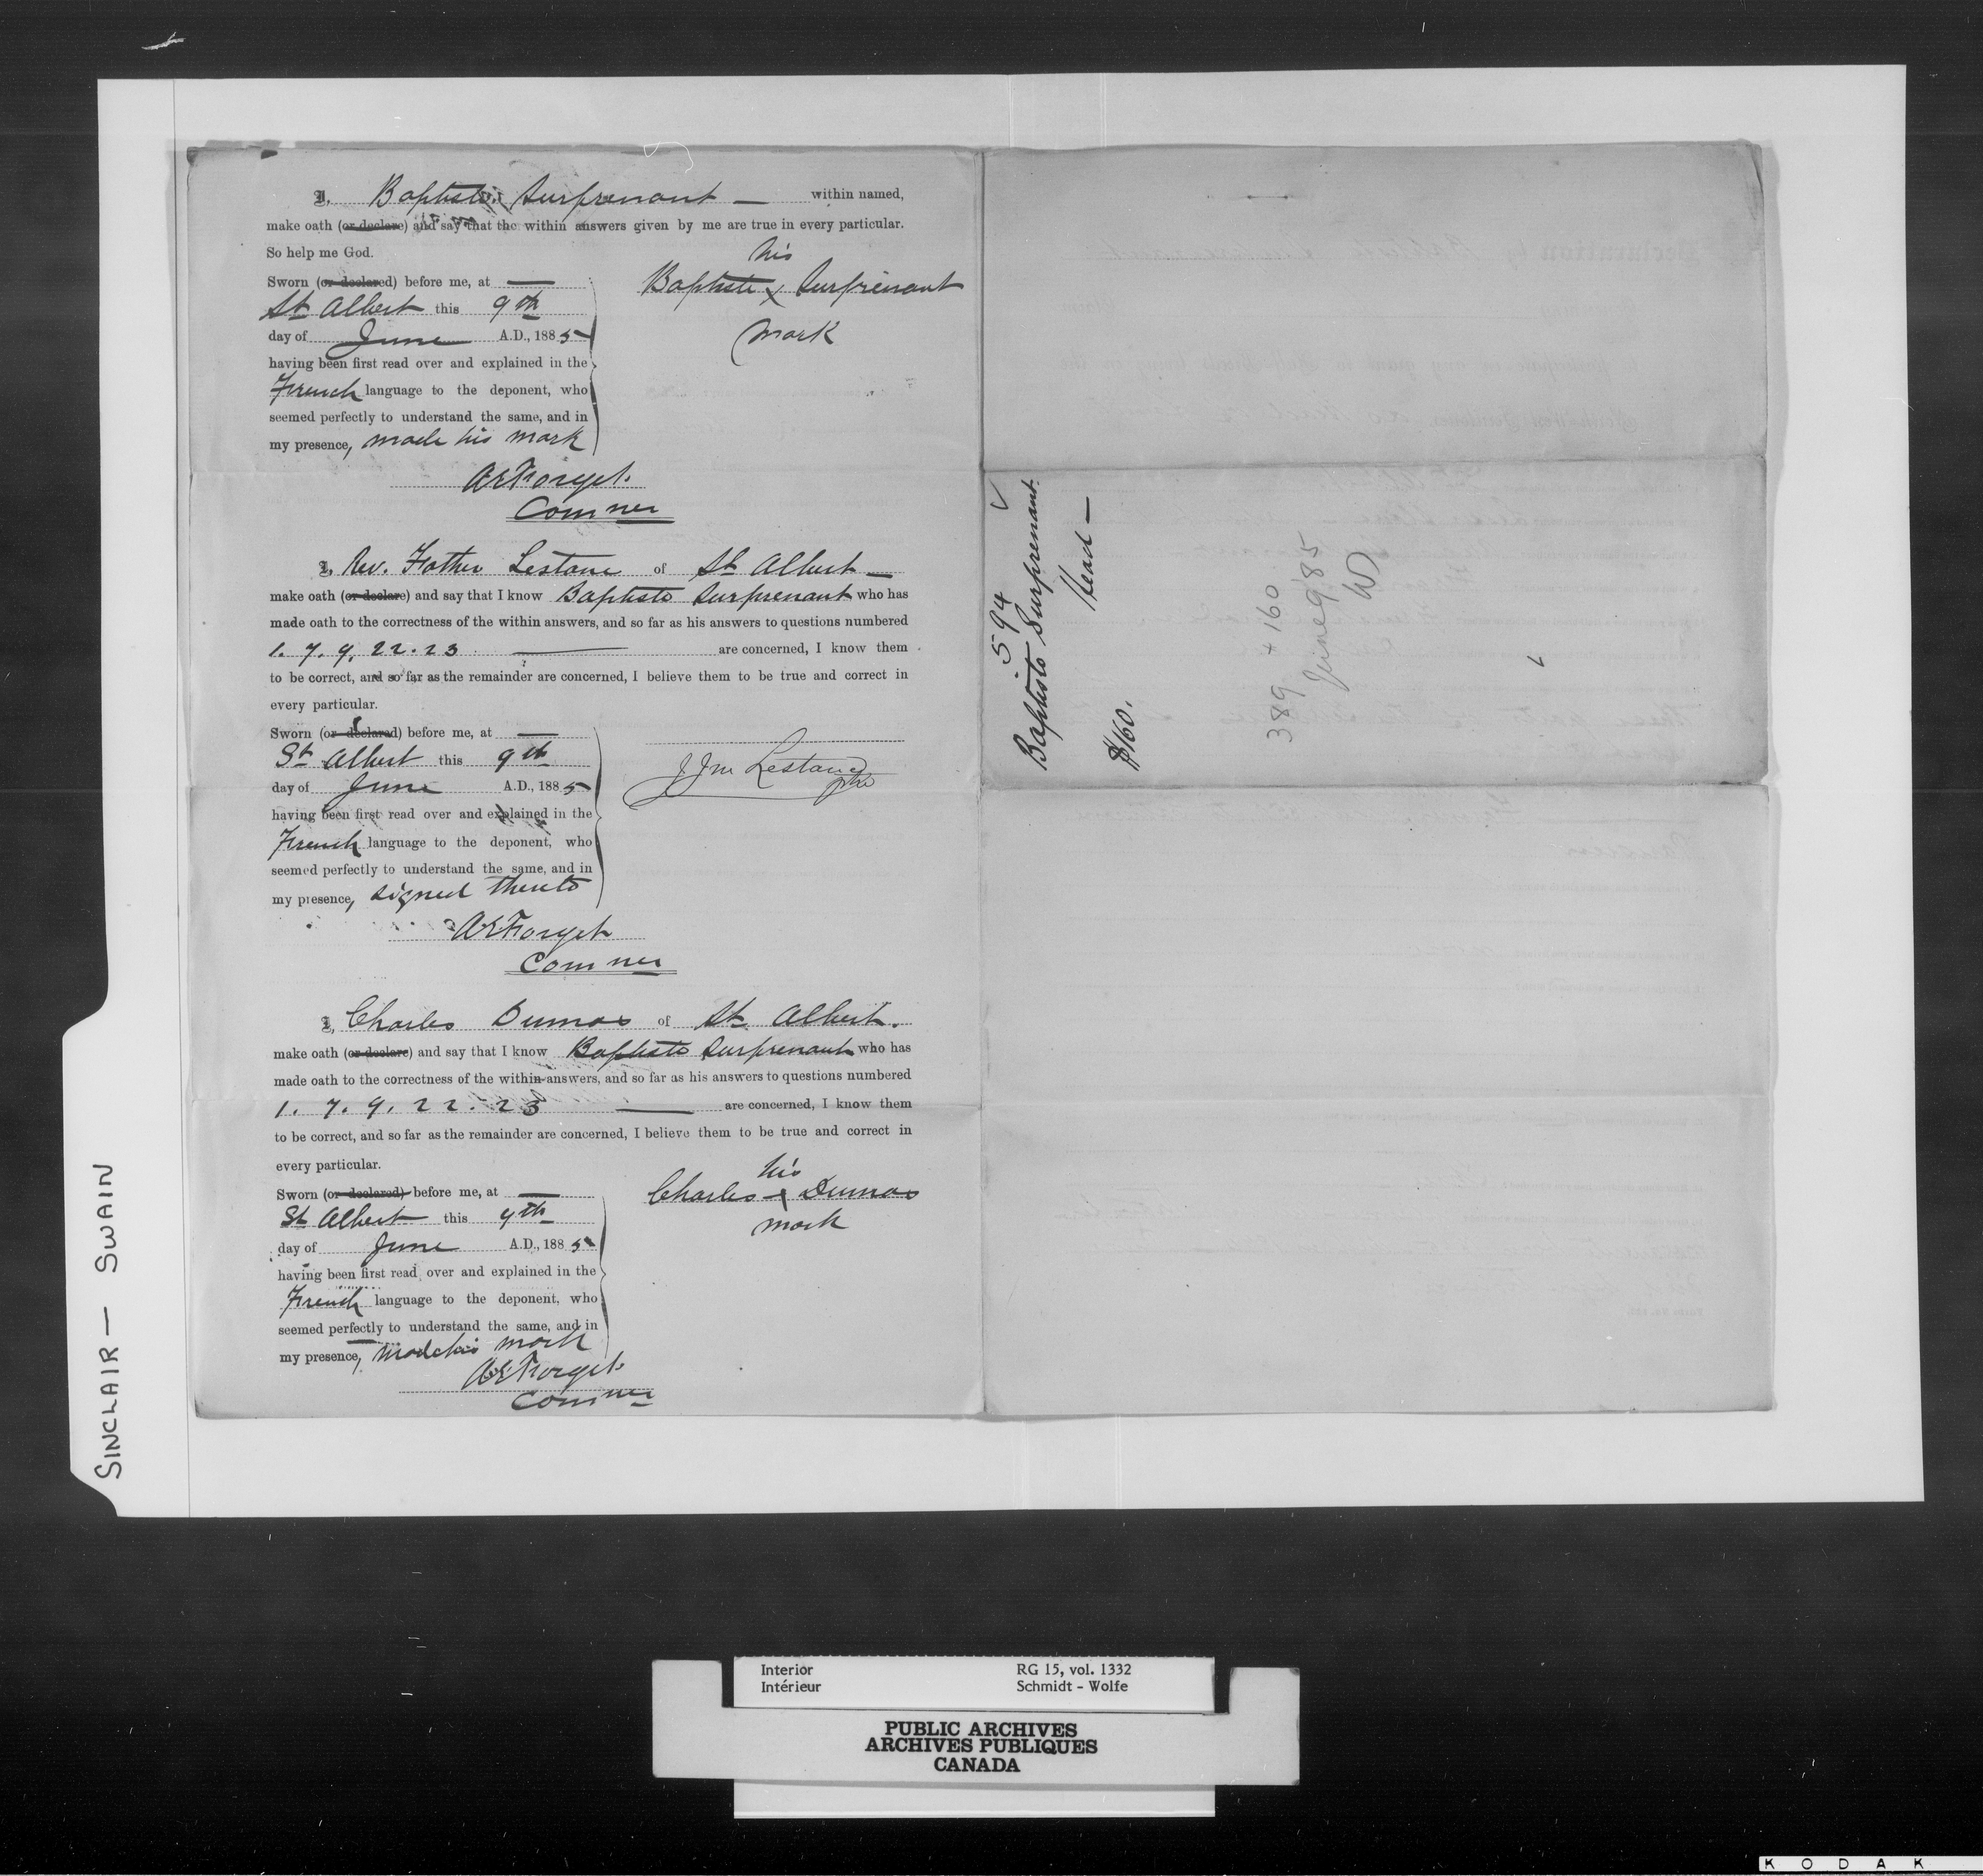 I, Baptiste Surprenant — within named,
make oath (or declare) and say that the within answers given by me are true in every particular.
So help me God.
Sworn (or declared) before me, at —
St Albert this 9th
day of June A.D., 1885
having been first read over and explained in the
French language to the deponent, who
seemed perfectly to understand the same, and in
my presence, made his mark
his
Baptiste x Surprenant
mark
AEForget.
Comner
I, Rev. Father Lestanc of St Albert —
make oath (or declare) and say that I know Baptiste Surprenant who has
made oath to the correctness of the within answers, and so far as his answers to questions numbered
1. 7. 9. 22. 23 — are concerned, I know them
to be correct, and so far as the remainder are concerned, I believe them to be true and correct in
every particular.
Sworn (or declared) before me, at —
St Albert this 9th
day of June A.D., 1885
having been first read over and explained in the
French language to the deponent, who
seemed perfectly to understand the same, and in
my presence, signed thereto
JJM Lestanc
ptre
AEForget
Comner
I, Charles Dumas of St Albert.
make oath (or declare) and say that I know Baptiste Surprenant who has
made oath to the correctness of the within answers, and so far as his answers to questions numbered
1. 7. 9. 22. 23 — are concerned, I know them
to be correct, and so far as the remainder are concerned, I believe them to be true and correct in
every particular.
Sworn (or declared) before me, at —
St Albert this 9th
day of June A.D., 1885
having been first read over and explained in the
French language to the deponent, who
seemed perfectly to understand the same, and in
my presence, made his mark
his
Charles x Dumas
mark
AEForget.
Comner
594
Baptiste Surprenant.
Head —
$160.
389 + 160
June 9/85
SINCLAIR — SWAIN
Interior RG 15, vol. 1332
Intérieur Schmidt - Wolfe
PUBLIC ARCHIVES
ARCHIVES PUBLIQUES
CANADA
KODAK